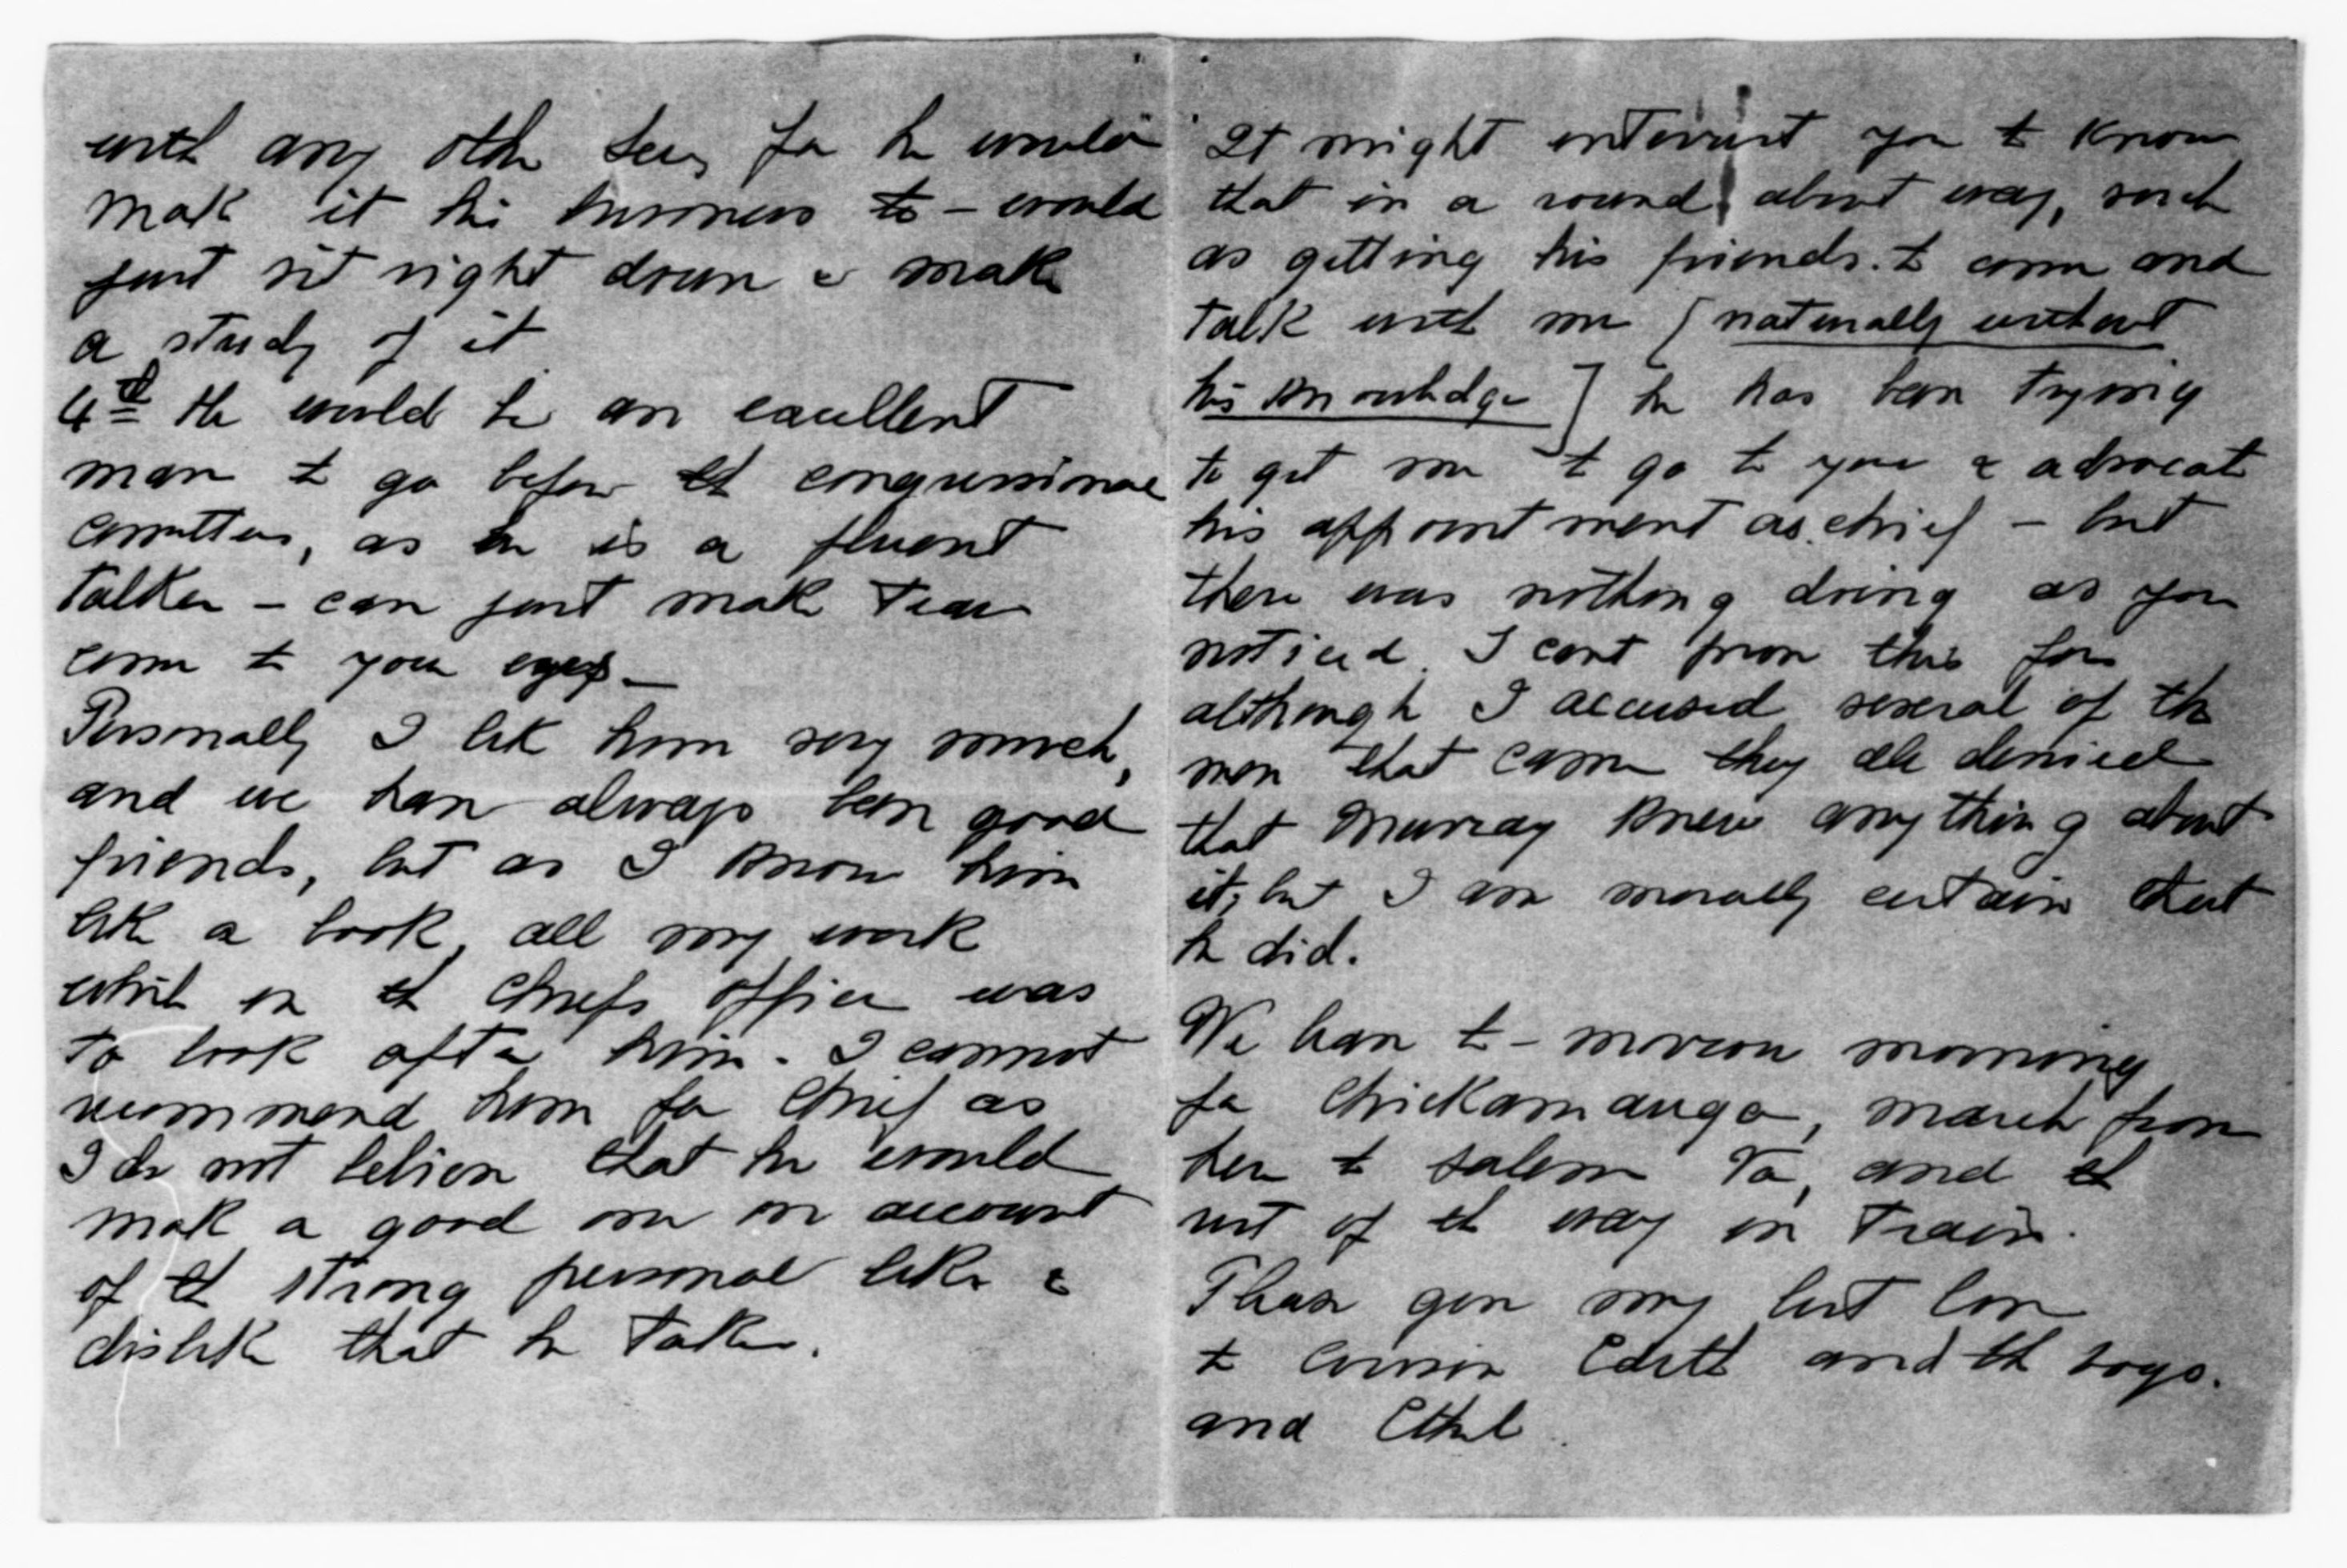 with any other Secy for he would
make it his business to - would
just sit right down & make
a study of it
4th He would be an excellent
man to go before the congressional
committees, as he is a fluent
talker - can just make tears
come to your eyes -
Personally I like him very much,
and we have always been good
friends, but as I know him
like a book, all my work
while in the Chiefs office was
to look after him. I cannot
recommend him for Chief as
I do not believe that he would
make a good one on account
of the strong personal like &
dislike that he takes.
It might interest you to know
that in a round about way, such
as getting his friends to come and
talk with me [naturally without
his knowledge] he has been trying
to get me to go to you & advocate
his appointment as chief - but
there was nothing doing as you
noticed. I cant prove this for
although I accused several of the
men that came they all denied
that Murray knew anything about
it, but I am morally certain that
he did.
We leave to-morrow morning
for Chickamauga, march from
here to Salem Va, and the
rest of the way in train.
Please give my best love
to Cousin Edith and the boys.
and Ethel.